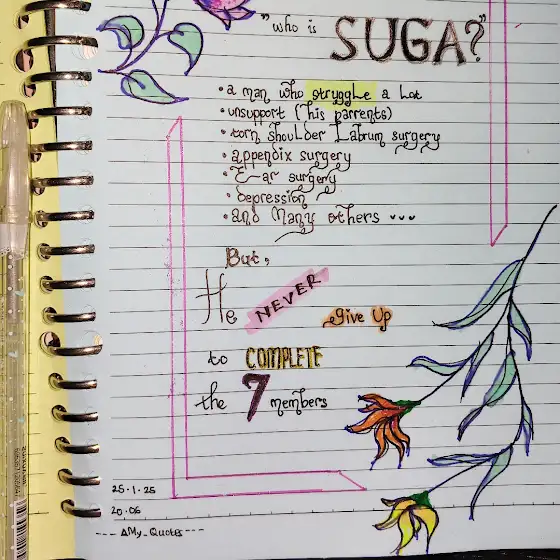 "who is SUGA?"
• a man who struggle a lot
• unsupport (his parrents)
• torn shoulder Labrum surgery
• appendix surgery
• Ear surgery
• Depression
• and Many others ...
But,
He NEVER give up
to COMPLETE
the 7 members
25.1.25
20.06
--- AMy_Quotes ---